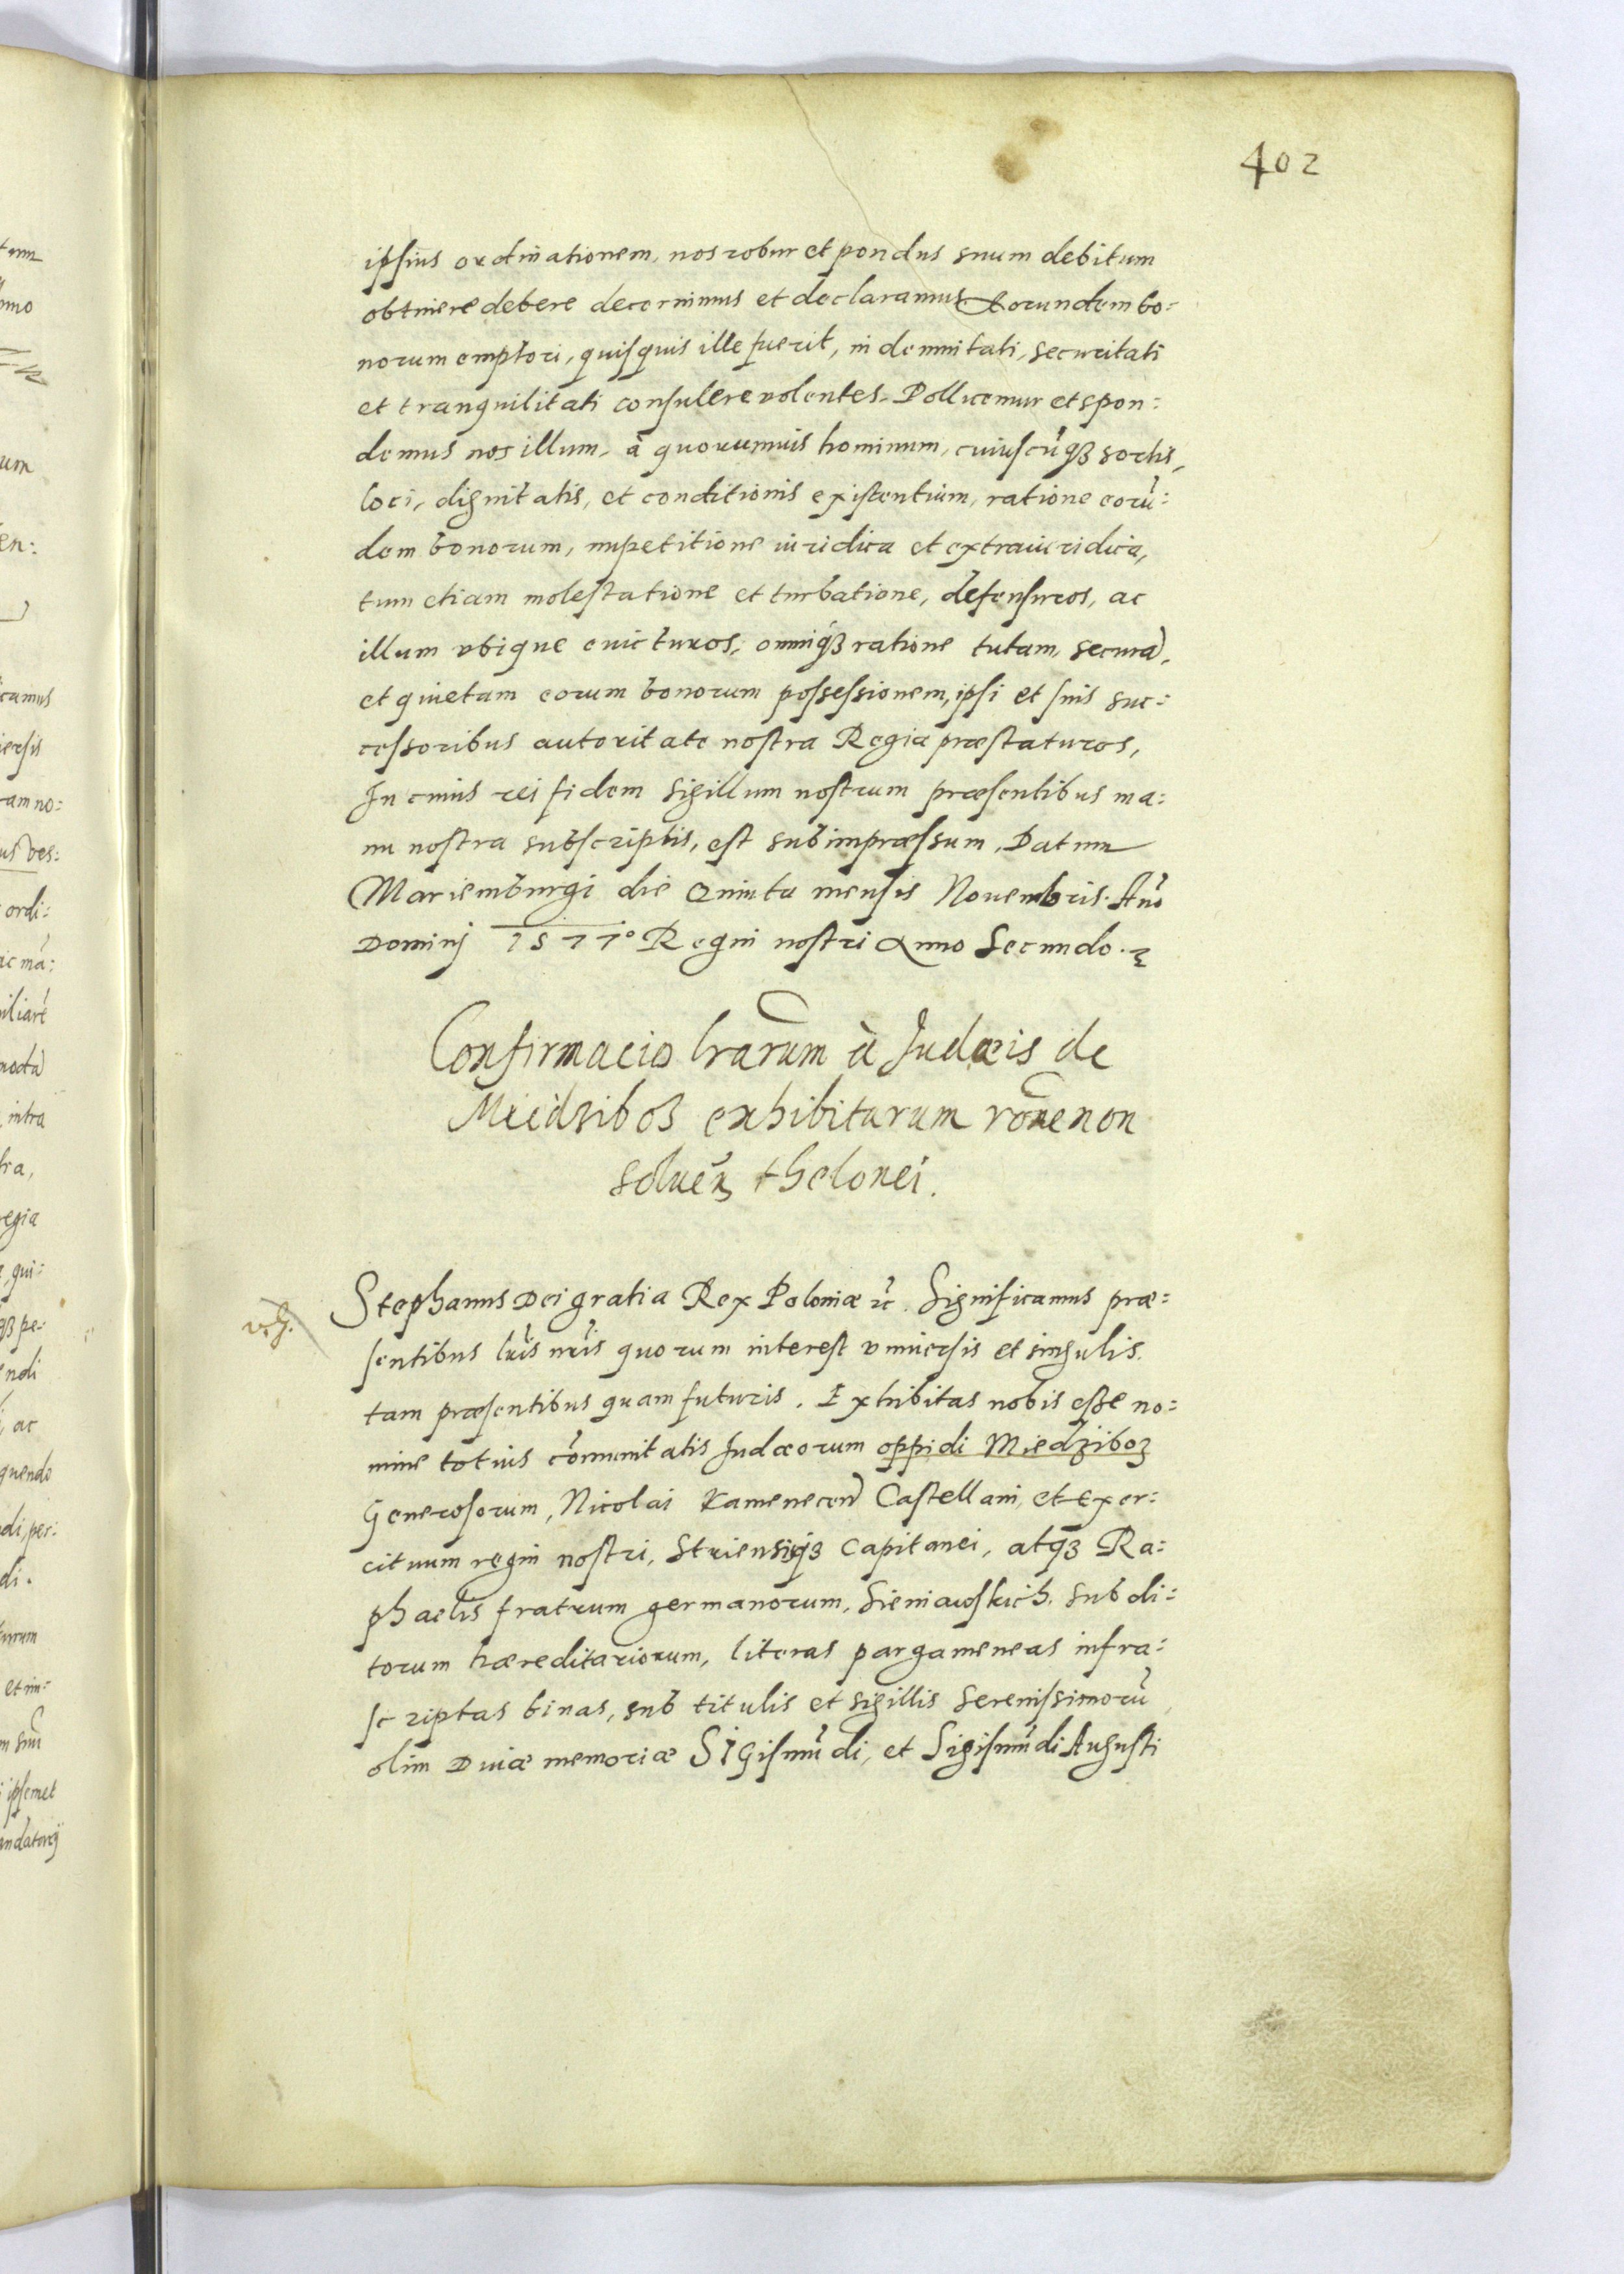 402
ipsius ordinationem, nos robur et pondus suum debitum
obtinere debere decernimus et declaramus. Eorundem bo:
norum emptori, quisquis ille fuerit, indemnitati, securitati
et tranquilitati consulere volentes. Pollicemur et spon:
demus nos illum, à quorumvis hominum, cuiuscūqȝ sortis,
loci, dignitatis, et conditionis existentium, ratione eorū:
dem bonorum, impetitione iuridica et extraiuridica,
tum etiam molestatione et turbatione, defensuros, ac
illum vbique euicturos, omniqȝ ratione tutam, securā,
et quietam eorum bonorum possessionem, ipsi et suis suc:
cessoribus autoritate nostra Regia præstaturos,
In cuius rei fidem sigillum nostrum præsentibus ma:
nu nostra subscriptis, est subimpræssum. Datum
Mariemburgi die Quinta mensis Nouembris. Año
Dominj 1577° Regni nostri Anno Secundo.
Confirmacio lrarum à Judæis de
Miedziboz exhibitarum rōne non
soluēn thelonei.
Stephanus Dei gratia Rex Poloniæ ꝛc. Significamus præ:
sentibus lris nris quorum interest vniuersis et singulis.
tam præsentibus quam futuris. Exhibitas nobis esse no:
mine totius cōmunitatis Judæorum oppidi Miedziboz
Generosorum, Nicolai Kamenecen Castellani, et exer:
cituum regni nostri, Striensiqȝ Capitanei, atqȝ Ra:
phaelis fratrum germanorum, Sieniawskich. subdi:
torum hæreditariorum, literas pargameneas infra:
scriptas binas, sub titulis et sigillis Serenissimorū
olim Diuæ memoriæ Sigismūdi, et Sigismūdi Augusti